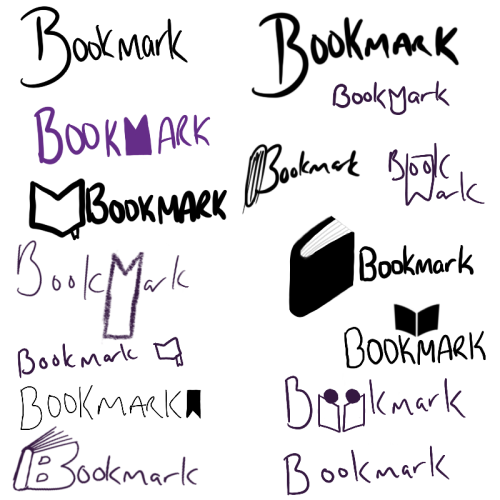 Bookmark
BOOKMARK
BOOKMARK
BookMark
Bookmark
BOOKMARK
Bookmark
BOOKMARK
BookMark
Bookmark
Book
Mark
Bookmark
BOOKMARK
Bookmark
Bookmark